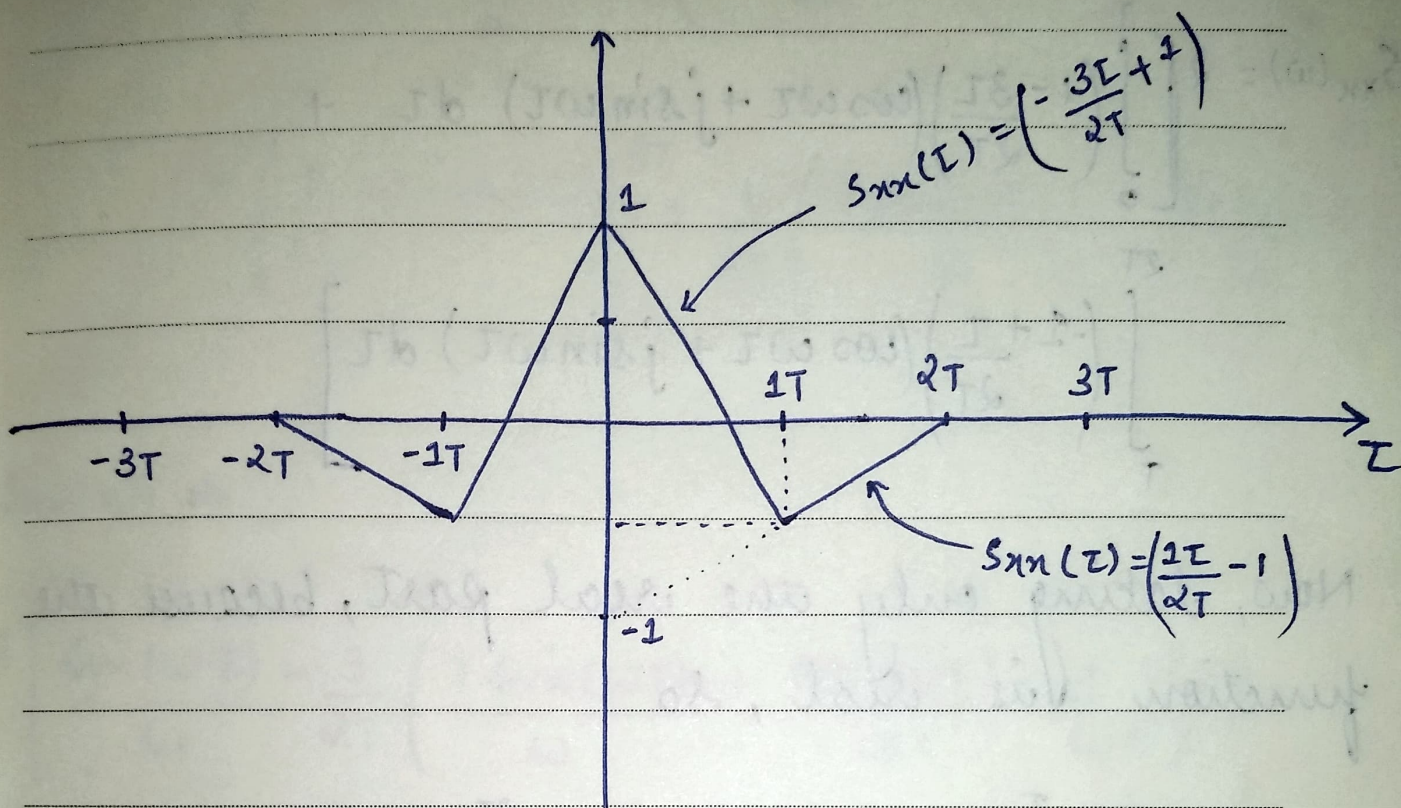 Sxx(τ) = (-3τ/2T + 1)
1
1T 2T 3T
-3T -2T -1T τ
Sxx(τ) = (1τ/2T - 1)
-1